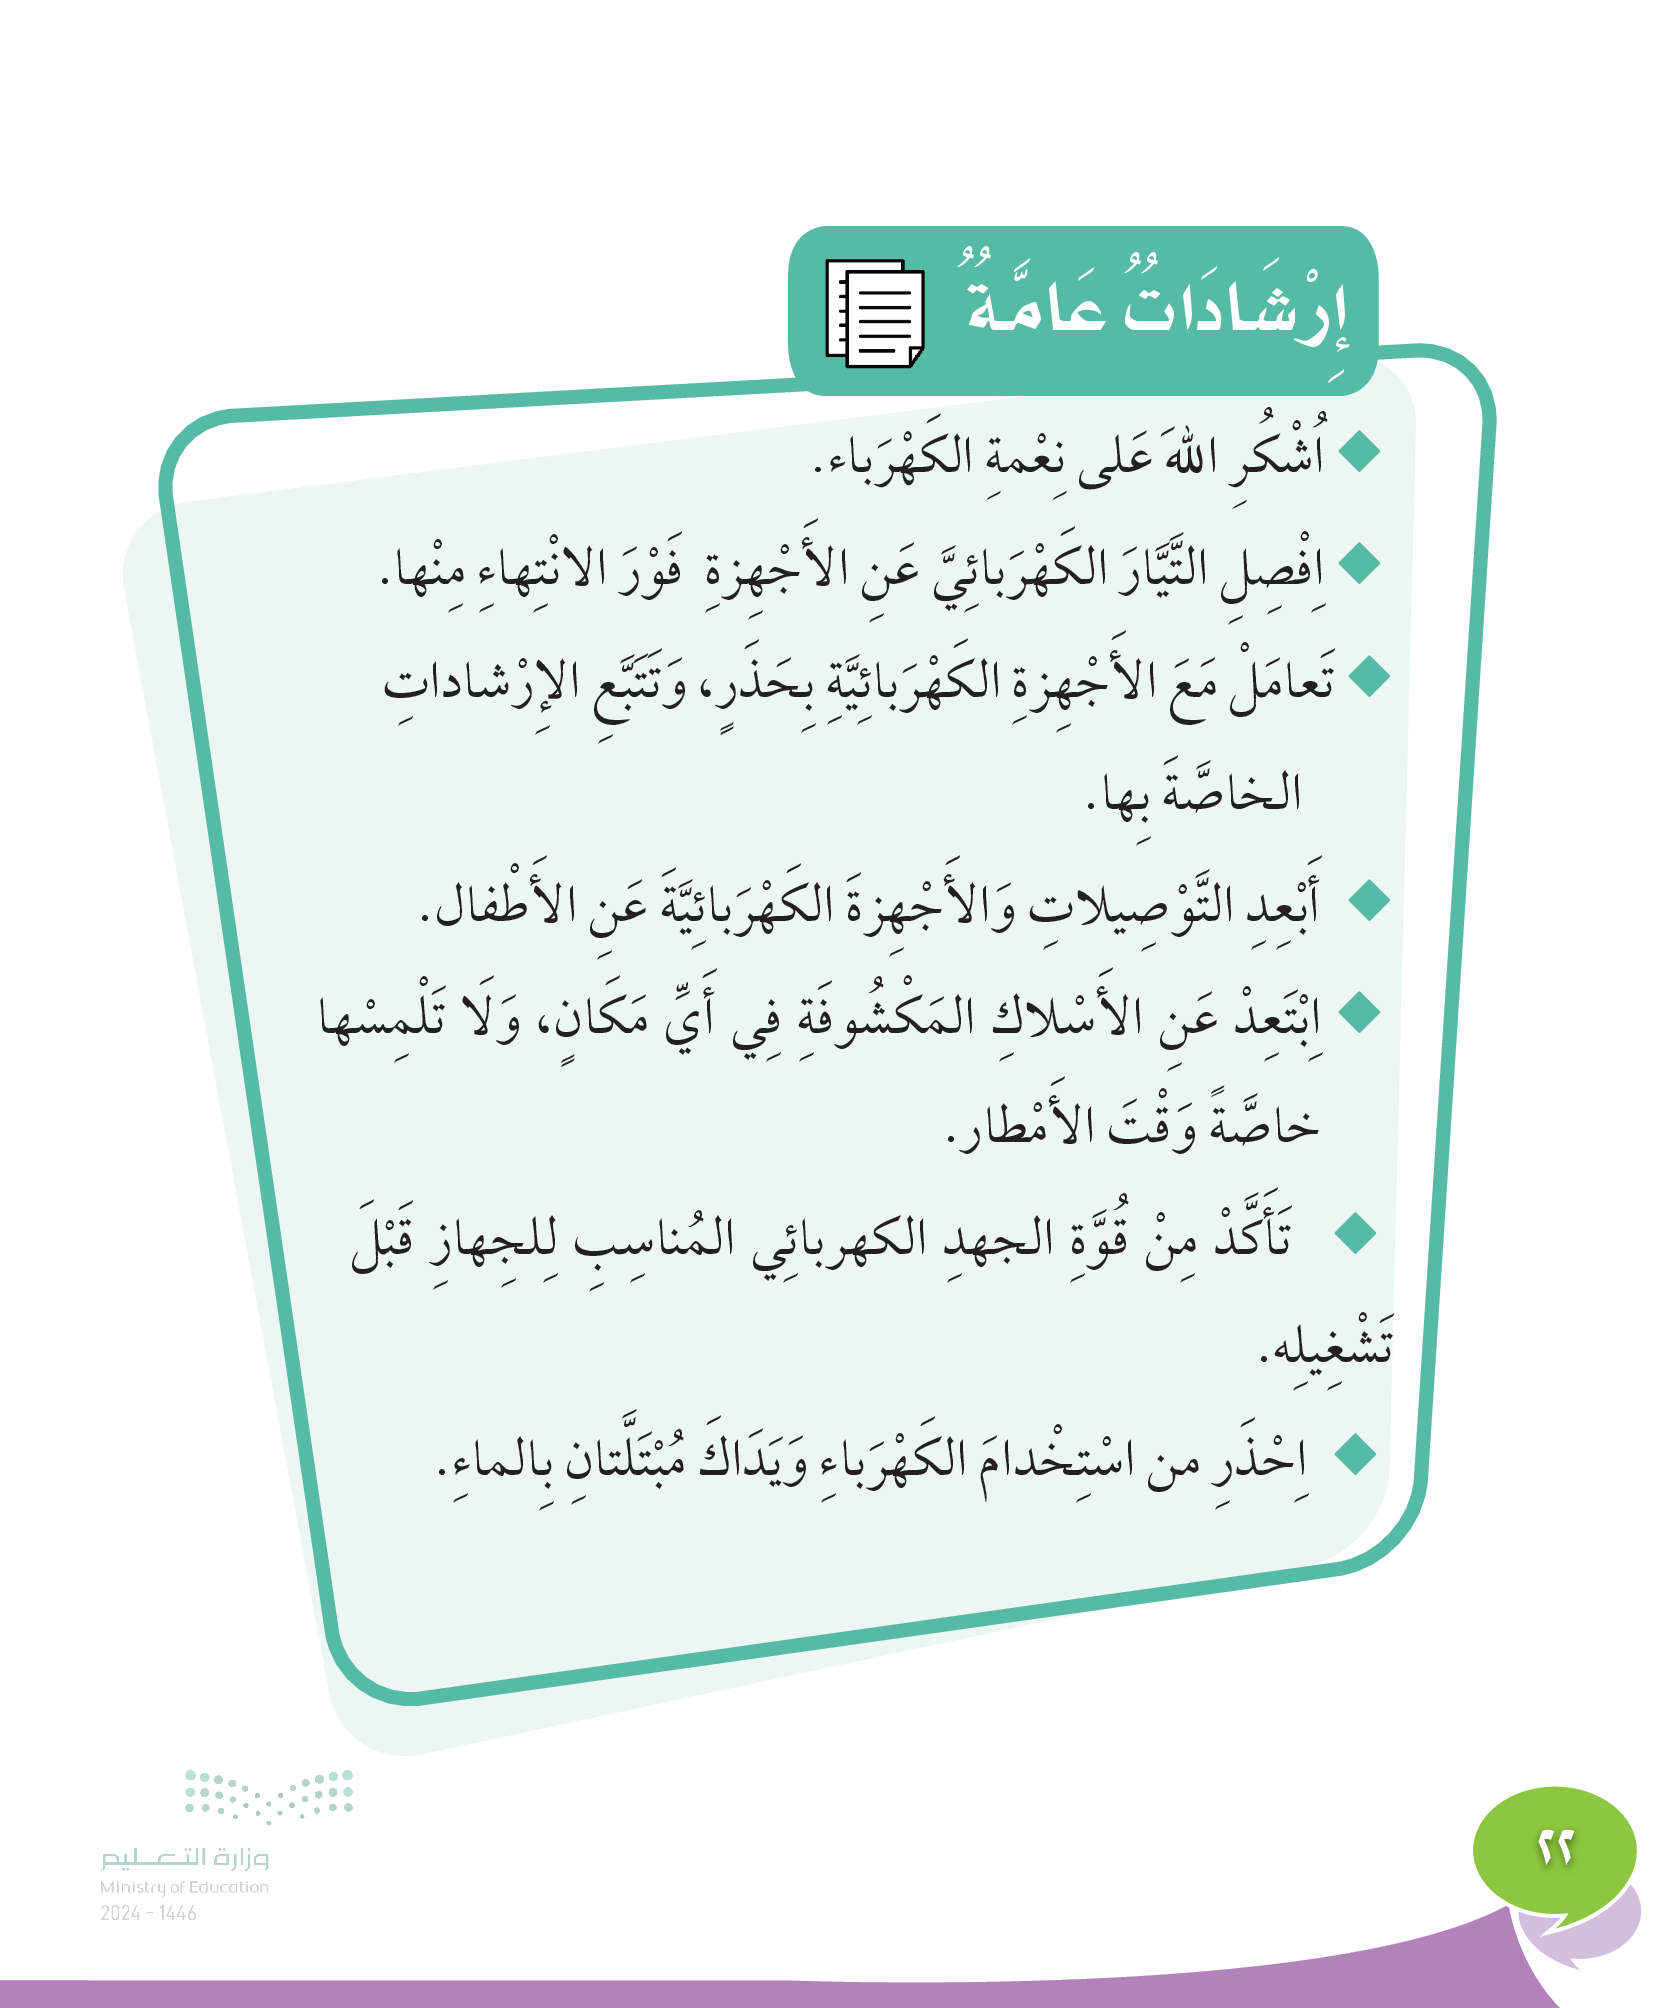 إِرْشَادَاتٌ عَامَّةٌ
اُشْكُرِ اللهَ عَلى نِعْمةِ الكَهْرَباء.
اِفْصِلِ التَّيَّارَ الكَهْرَبائِيَّ عَنِ الأَجْهِزةِ فَوْرَ الانْتِهاءِ مِنْها.
تَعامَلْ مَعَ الأَجْهِزةِ الكَهْرَبائِيَّةِ بِحَذَرٍ، وَتَتَبَّعِ الإِرْشاداتِ
الخاصَّةَ بِها.
أَبْعِدِ التَّوْصِيلاتِ وَالأَجْهِزةَ الكَهْرَبائِيَّةَ عَنِ الأَطْفال.
اِبْتَعِدْ عَنِ الأَسْلاكِ المَكْشُوفَةِ فِي أَيِّ مَكَانٍ، وَلَا تَلْمِسْها
خاصَّةً وَقْتَ الأَمْطار.
تَأَكَّدْ مِنْ قُوَّةِ الجهدِ الكهربائِي المُناسِبِ لِلجِهازِ قَبْلَ
تَشْغِيلِه.
اِحْذَرِ من اسْتِخْدامَ الكَهْرَباءِ وَيَدَاكَ مُبْتَلَّتانِ بِالماءِ.
وزارة التعليم
Ministry of Education
2024 - 1446
٢٢